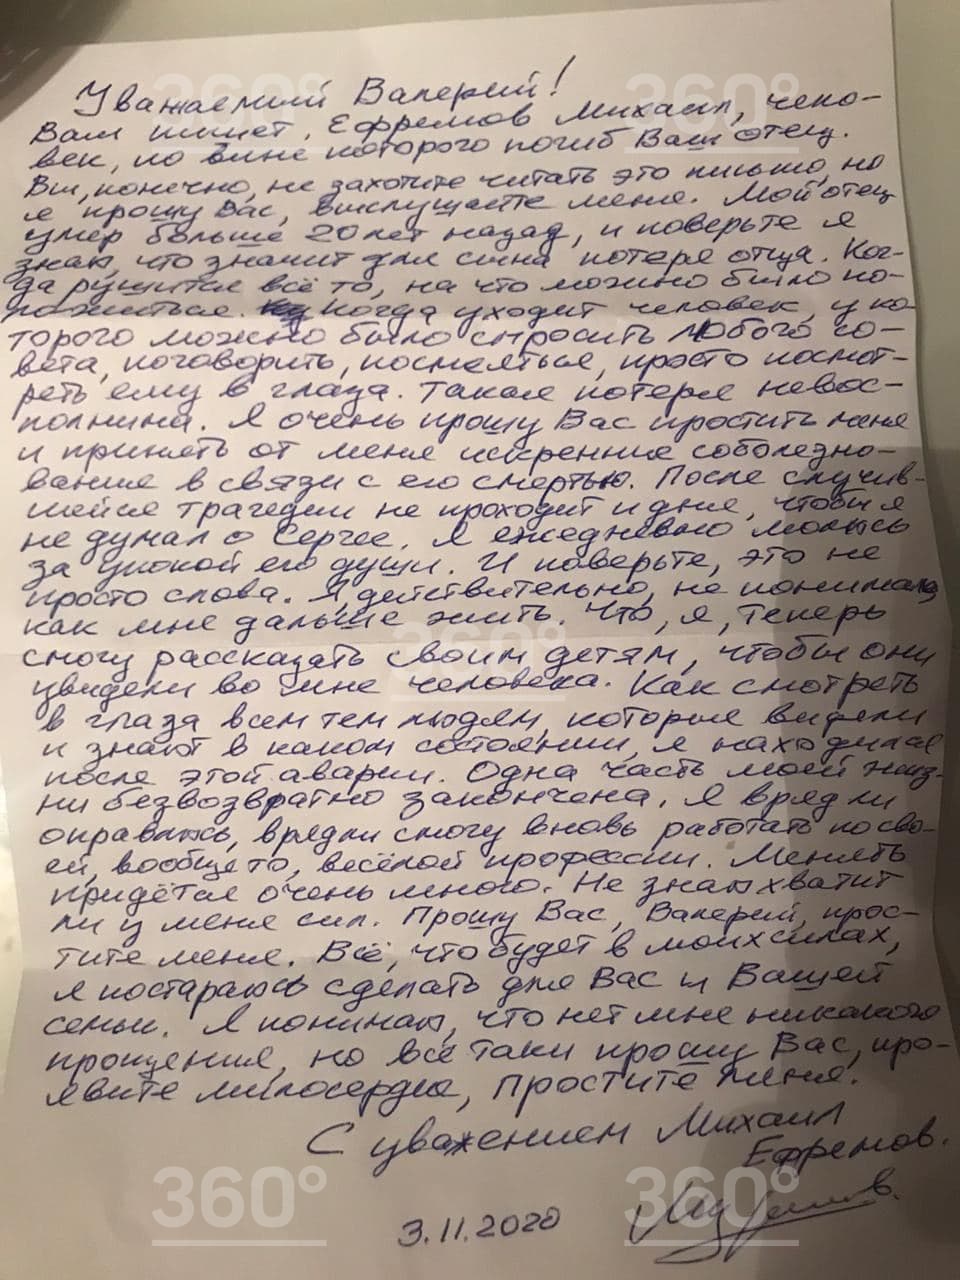 Уважаемый Валерий!
Вам пишет, Ефремов Михаил, чело-
век, по вине которого погиб Ваш отец.
Вы, конечно, не захотите читать это письмо, но
я прошу Вас, выслушайте меня. Мой отец
умер больше 20 лет назад, и поверьте я
знаю, что значит для сына потеря отца. Ког-
да рушится всё то, на что можно было по-
ложиться. Когда уходит человек, у ко
торого можно было спросить любого со-
вета, поговорить, посмеяться, просто посмот-
реть ему в глаза. Такая потеря невос-
полнима. Я очень прошу Вас простить меня
и принять от меня искренние соболезно-
вание в связи с его смертью. После случив-
шейся трагедии не проходит и дня, чтобы я
не думал о Сергее. Я ежедневно молюсь
за упокой его души. И поверьте, это не
просто слова. Я, действительно, не понимаю,
как мне дальше жить. Что, я, теперь
смогу рассказать своим детям, чтобы они
увидели во мне человека. Как смотреть
в глаза всем тем людям, которые видели
и знают в каком состоянии, я находился
после этой аварии. Одна часть моей жиз-
ни безвозвратно закончена. Я вряд ли
оправлюсь, врядли смогу вновь работать по сво-
ей, вообще то, весёлой профессии. Менять
придётся очень много. Не знаю хватит
ли у меня сил. Прошу Вас, Валерий, прос-
тите меня. Всё, что будет в моих силах,
я постараюсь сделать для Вас и Вашей
семьи. Я понимаю, что нет мне никакого
прощения, но всё таки прошу Вас, про-
явите милосердие, простите меня.
С уважением Михаил
Ефремов.
3.11.2020
360°
360°
360°
360°
360°